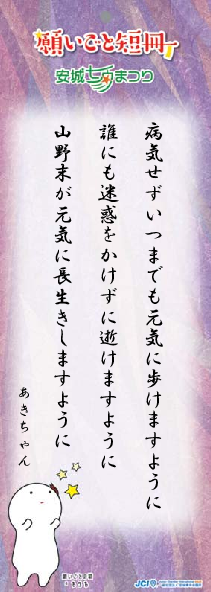 願いごと短冊
安城七夕まつり
病気せずいつまでも元気に歩けますように
誰にも迷惑をかけずに逝けますように
山野末が元気に長生きしますように
あきちゃん
願いごと短冊
JCI